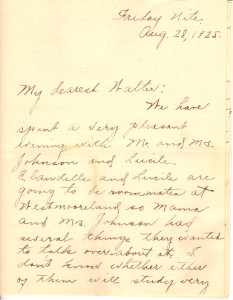 Friday Nite.
Aug. 28, 1925.
My dearest Walter:
We have
spent a very pleasant
evening with Mr. and Mrs.
Johnson and Lucile.
Claudelle and Lucile are
going to be roommates at
Westmoreland so Mama
and Mrs. Johnson had
several things they wanted
to talk over about it. I
don't know whether either
of them will study very